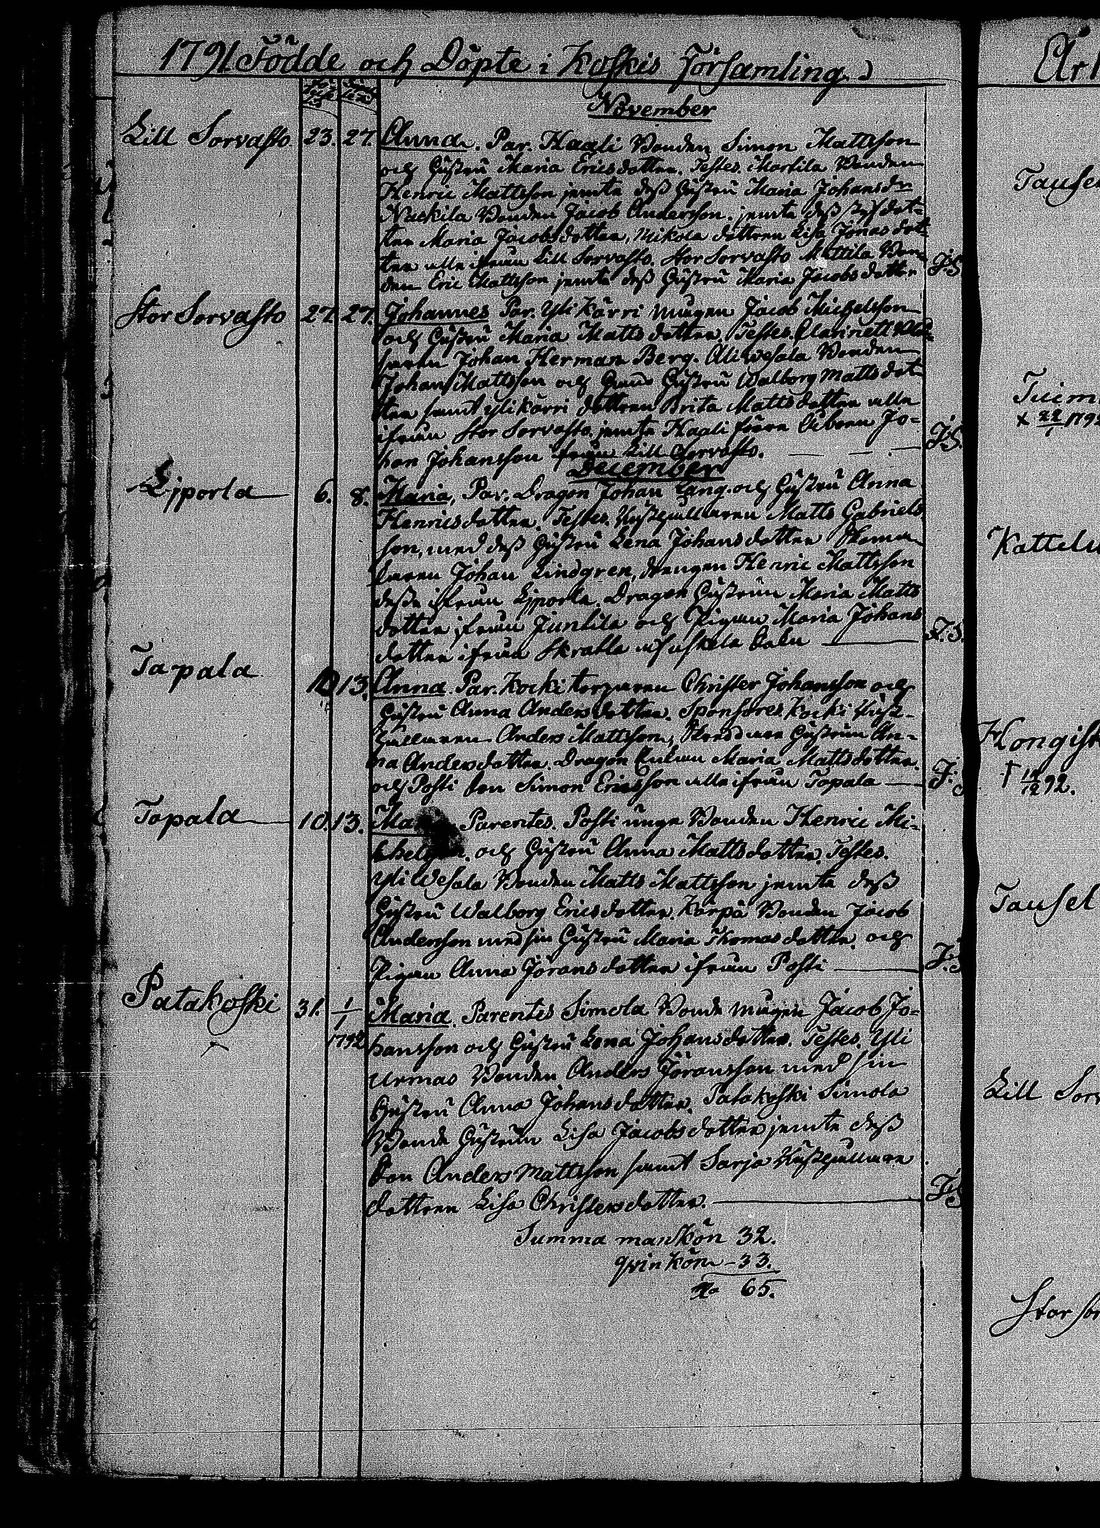 1791 Födde och Döpte i Koskis Församling.
November
Lill Sorvasto 23. 27. Anna. Par. Haali Bonden Simon Mattsson
och Hustru Maria Ericsdotter. Testes. Martila Bonden
Henric Mattsson jemte dess Hustru Maria Johansdr
Nuckila Bonden Jacob Andersson jemte dess
ter Maria Jacobsdotter, Mikola dottren Lisa Jonas dot
ter alle ifrån Lill Sorvasto. Stor Sorvasto Mattila Bon-
den Eric Mattsson jemte dess Hustru Maria Jacobs dotter J.S
Stor Sorvasto 27. 27. Johannes Par. Yli Kärri mågen Jacob Michelsson
och Hustru Maria Matts dotter, Testes. Clarinett Blå-
saren Johan Herman Berg. Bonden
Johan Mattsson och Hustru Walborg Matts dot
ter samt Ylikärri dottren Brita Matts dotter alle
ifrån Stor Sorvasto, jemte Haali Jo-
han Johansson från Lill Sorvasto. J.S
December
Liporla 6. 8. Maria, Par. Dragon Johan Lang och Hustru Anna
Henricsdotter. Testes. Matts Gabriels
son, med dess Hustru Lena Johansdotter
Johan Lindgren, drengen Henric Mattsson
desse ifrån Liporla. Dragon Hustrun Maria Matts
dotter ifrån Juntila och Pigan Maria Johans
dotter ifrån J.S.
Tapala 10 13. Anna. Par. Kocki torparen Christer Johansson och
Hustru Anna Andersdotter. Sponsores. Kocki
Anders Mattsson, Hustrun An-
na Andersdotter. Dragon Enkan Maria Mattsdotter
och Posti Son Simon Ericsson alle ifrån Tapala J.S
Tapala 10. 13. Ma Parentes. Posti unge Bonden Henric Mi-
chelsson, och Hustru Anna Mattsdotter, Testes.
Yli Wesala Bonden Matts Mattsson jemte dess
Hustru Walborg Ericsdotter, Kärpä Bonden Jacob
Andersson med sin Hustru Maria Thomas dotter, och
Pigan Anna Jöransdotter ifrån Posti J.S
Patakoski 31. 1/1 Maria. Parentes Simola Bonde mågen Jacob Jo-
1792 hansson och Hustru Lena Johansdotter. Testes. Yli
Urmas Bonden Anders Jöransson med sin
Hustru Anna Johansdotter. Patakoski Simola
Bonde Hustrun Lisa Jacobsdotter jemte dess
Son Anders Mattsson samt Sarja
dottren Lisa Christersdotter. J.S
Summa mankön 32.
qvinkön - 33.
65.
Tausel
x 22/1 1792
Kattelu
Hongist
† 12/12 92.
Tausel
Lill Sorv
Stor Sor